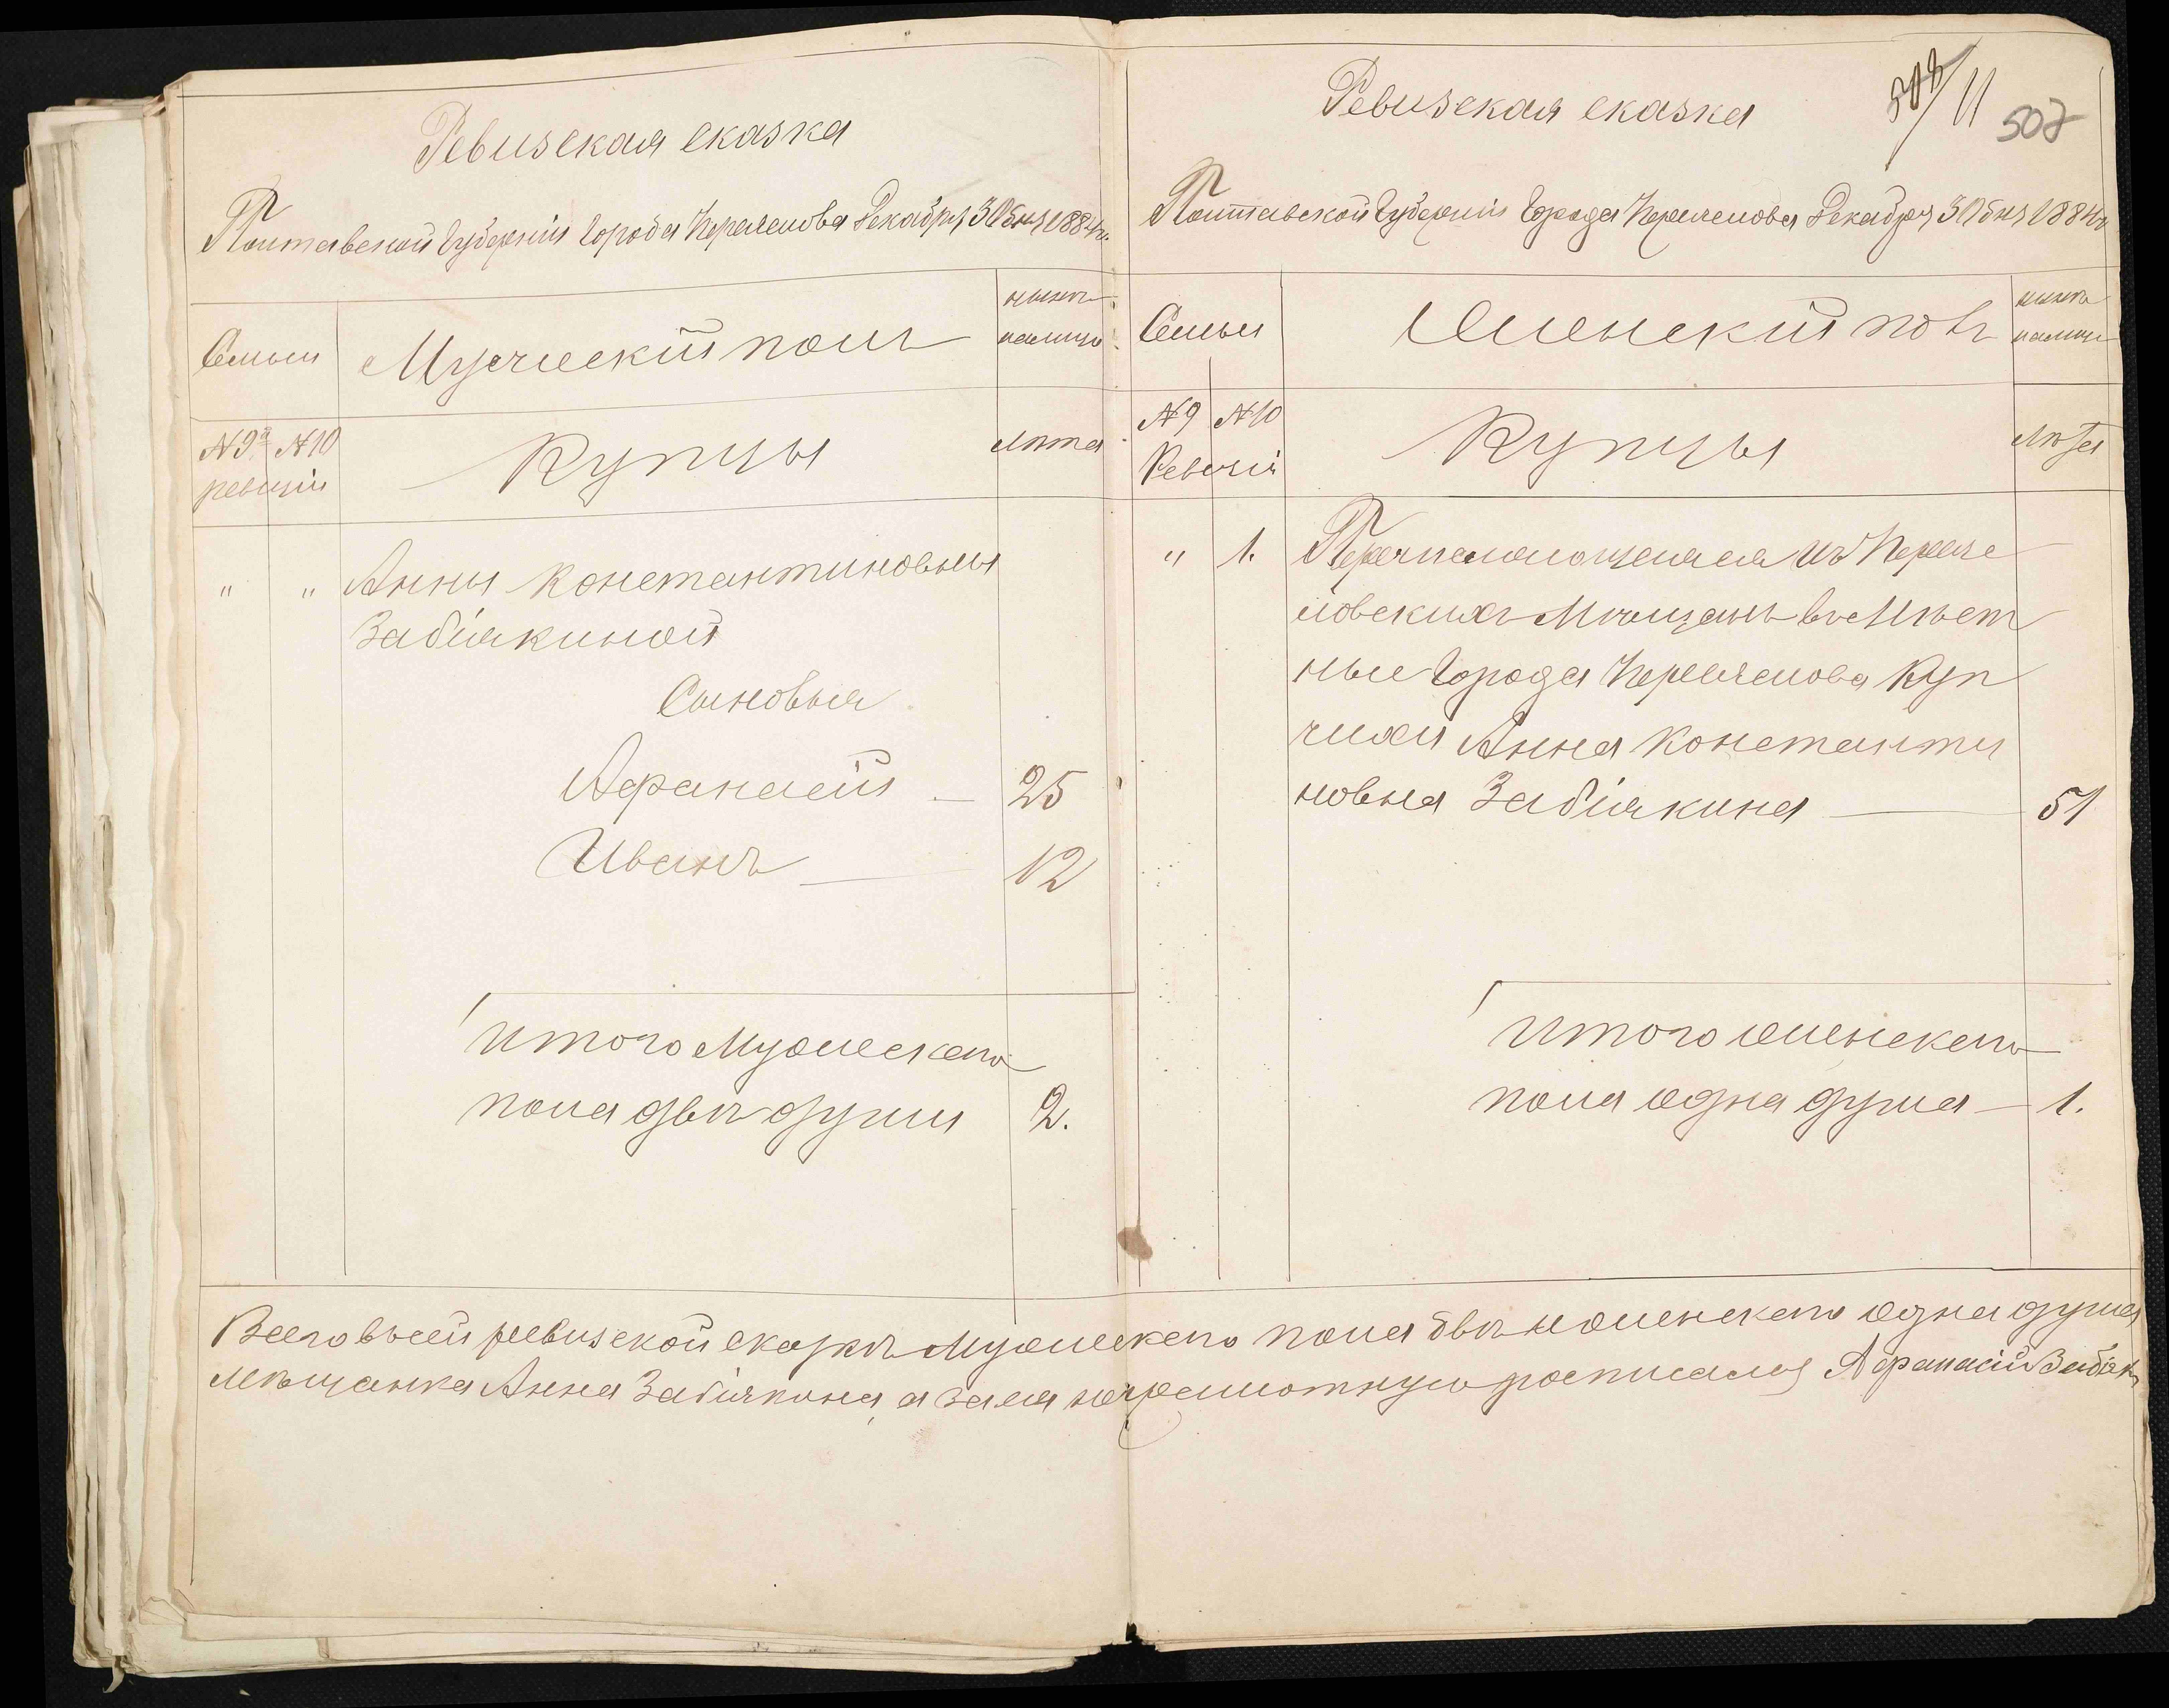 Ревизская сказка
Полтавской Губерніи Города Кременчова Декабря 31 дня 1884 г.
Семьи
Мужескій полъ
нынѣ
налицо
№ 9й № 10
ревизіи
Купцы
Лѣта
" " Анны Константиновны
Забіякиной
Сыновья
Афанасій — 25
Иванъ — 12
Итого Мужескаго
пола двѣ души 2.
Ревизская сказка
508/11 507
Полтавской Губерніи Города Кременчова Декабря 31 дня 1884 г
Семьи
Женскій полъ
нынѣ
налицо
№ 9 № 10
Ревизіи
Купцы
Лѣта
" 1. Перечисляющаяся изъ Кремен
човскихъ Мѣщанъ въ Мѣст
ные Города Кременчова Куп
чихи Анна Константи
новна Забіякина — 51
Итого женскаго
пола одна душа — 1.
Всего въ сей ревизской сказкѣ Мужескаго пола двѣ и женскаго одна душа
Мѣщанка Анна Забіякина, а за нея неграмотную росписался Афанасій Забіякинъ